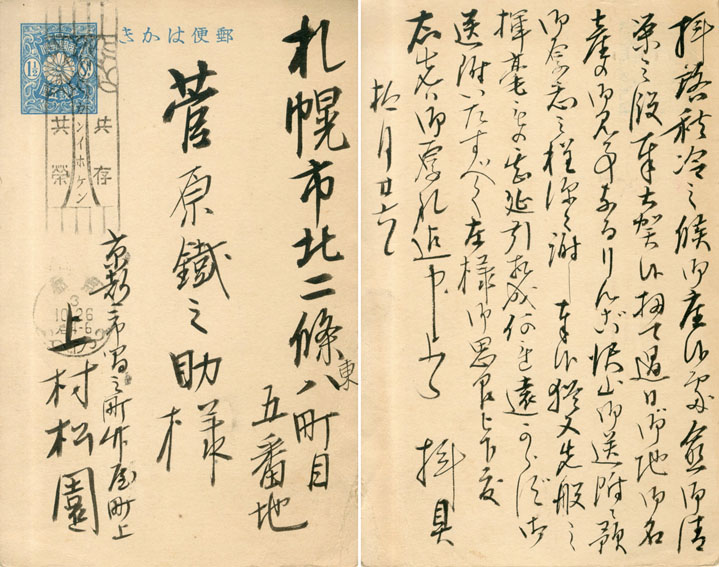 郵便はかき
1½
共存
共榮
カンイホケン
3
10.26
札幌市北二條
東
八町目
五番地
菅原鐵之助様
京都市間之町竹屋町上
上村松園
拝啓秋冷之候御座候處愈御清
栄之段奉大賀候扨て過日御地御名
産の御見事なるりんご沢山御送附之額
御厚志之程深く謝し奉候猶又先般之
揮毫もの
延引相成何れ遠からず御
送附いたすべく
左様御思召被下度
右先は御厚礼迄申上候
拝具
拾月廿六日